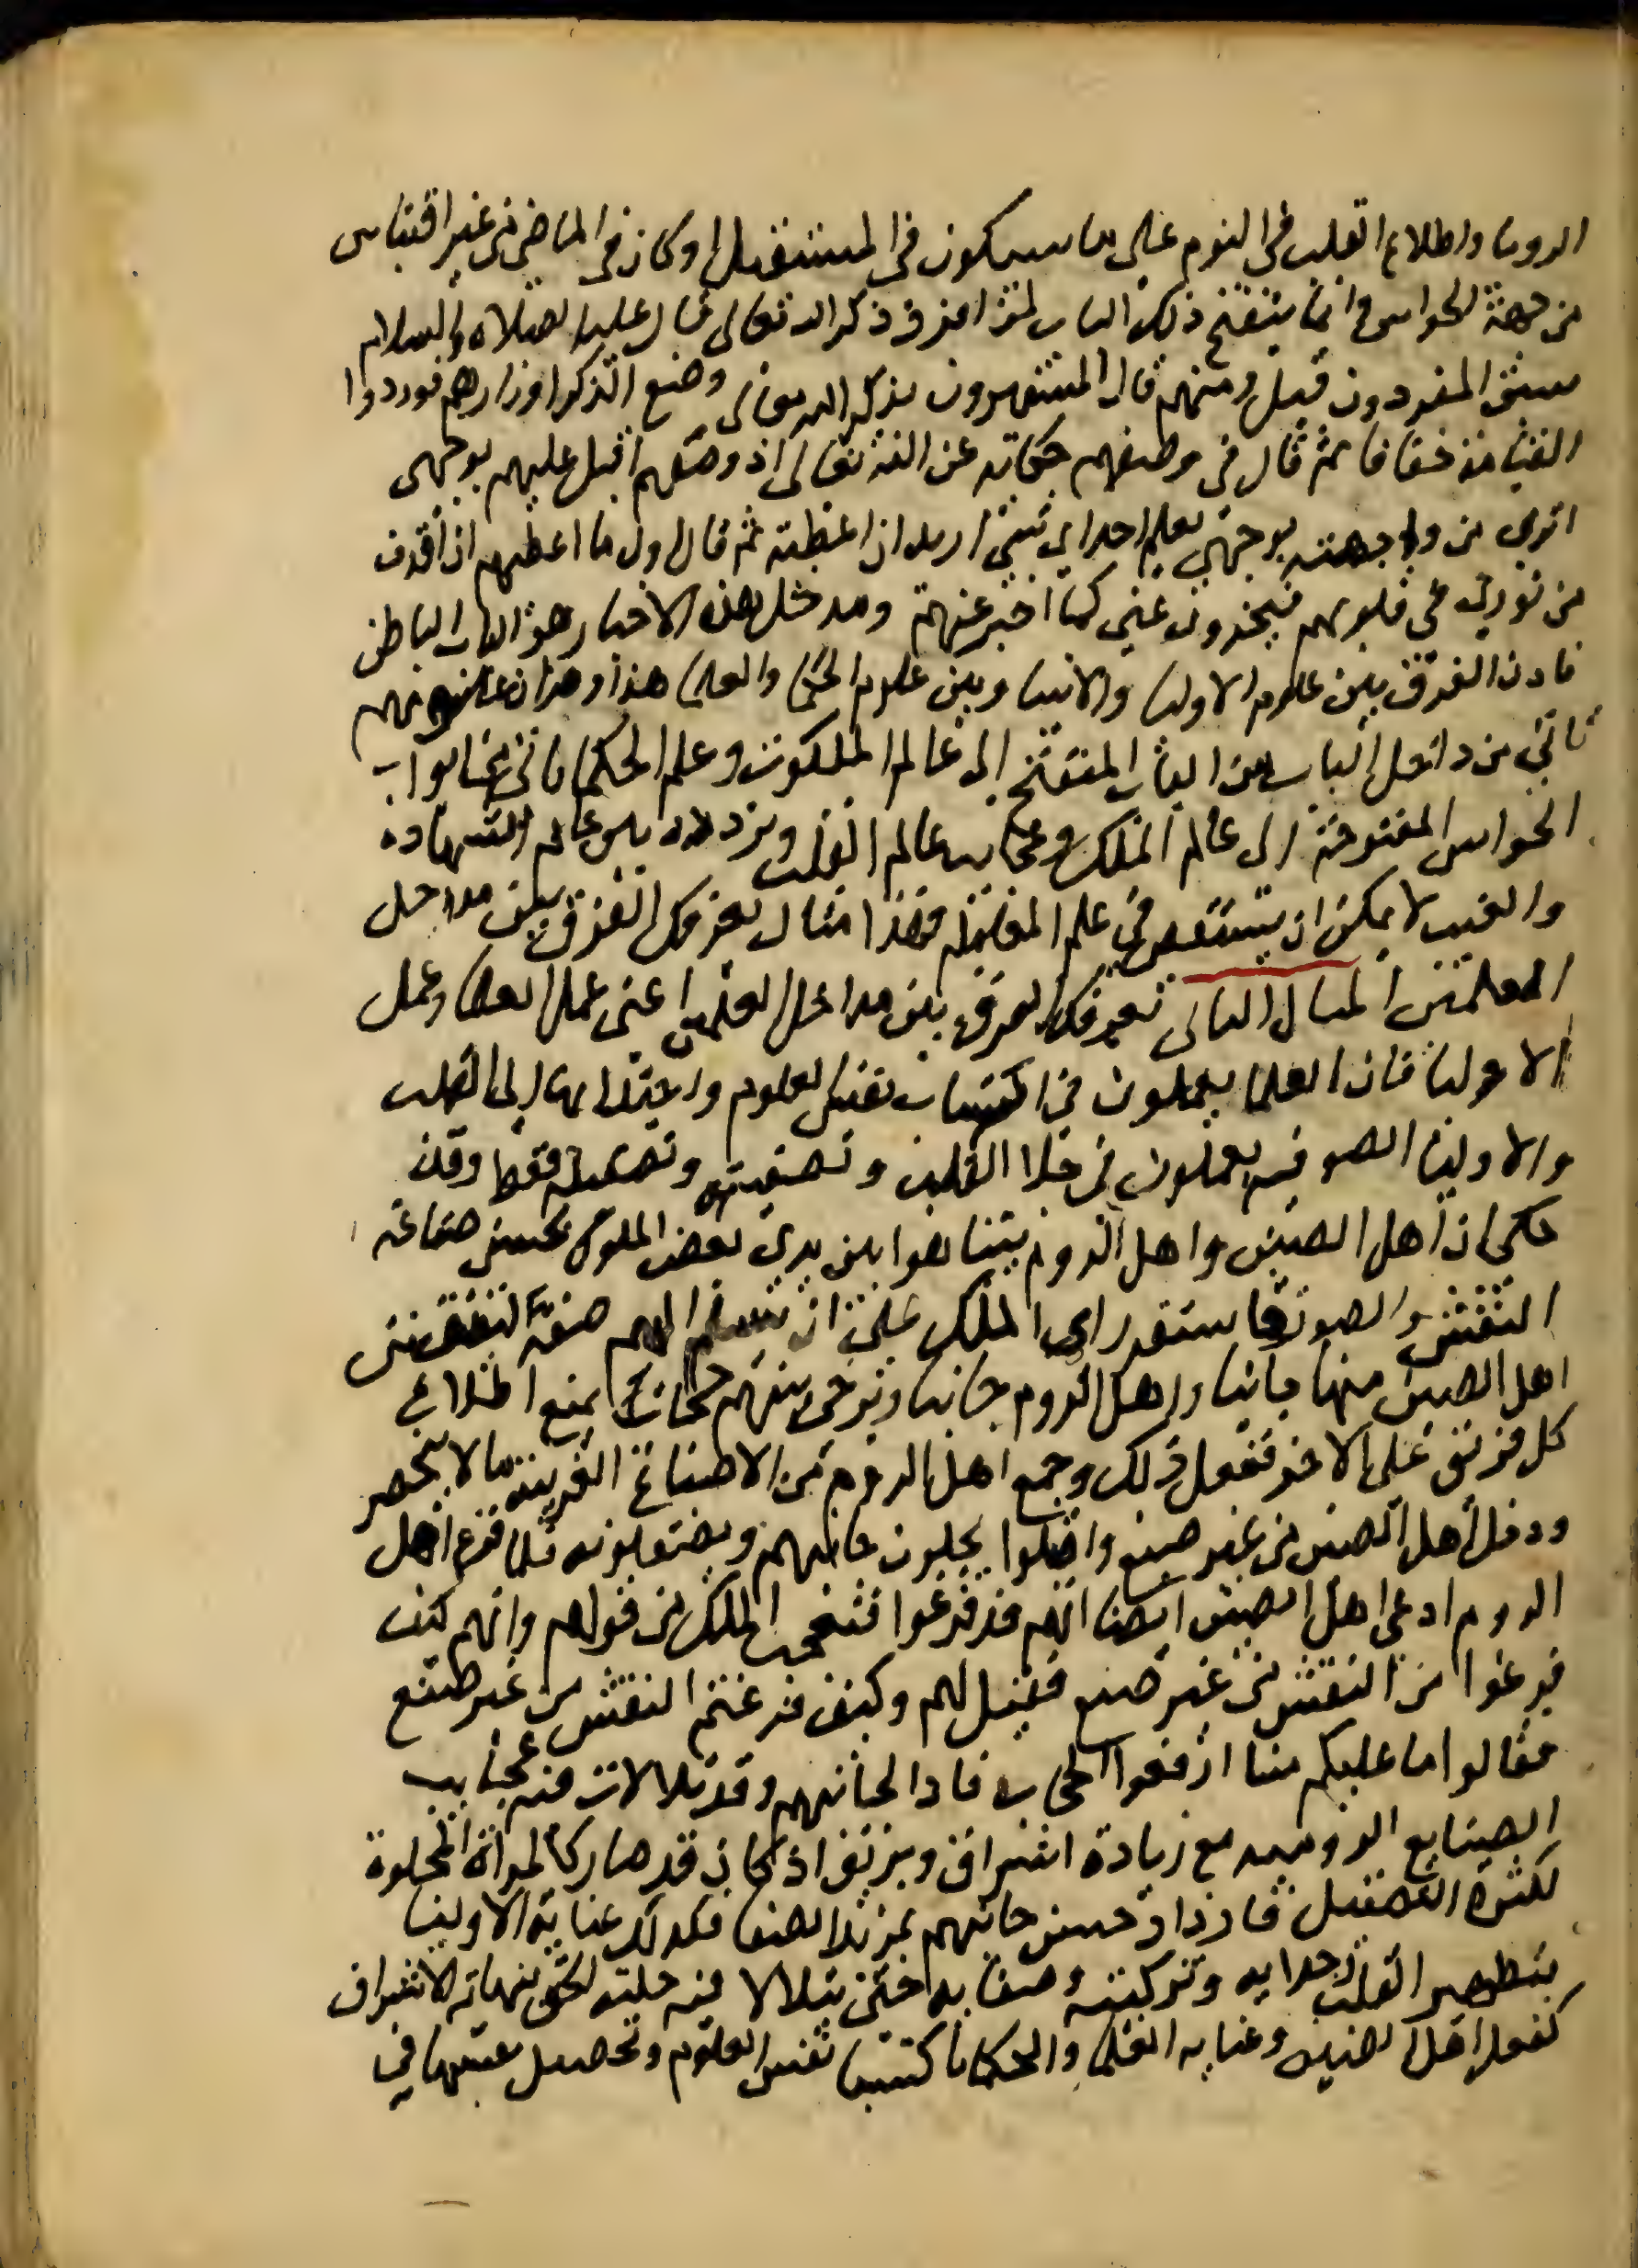 الرويا واطلاع القلب في النوم على ما سيكون في المستقبل او كان في الماضي من غير اقتباس
من جهة الحواس وانما ينفتح ذلك الباب لمن انفرد في ذكر الله تعالى قال عليه الصلاه والسلام
سبق المفردون قيل ومنهم قال المستهترون بذكر الله تعالى وضع الذكر اوزارهم فوردوا
القيامة خفافا ثم قال في وصفهم حكاية عن الله تعالى اذ وصفهم اقبل عليهم بوجهي
اترى من واجهته بوجهي يعلم احد اي شي اريد ان اعطيه ثم قال اول ما اعطيهم ان اقذف
من نوري في قلوبهم فيخبرون عني كما اخبر عنهم ومدخل هذه الاخبار هو الباب الباطن
فاذن الفرق بين علوم الاوليا والانبيا وبين علوم الحكما والعلما هذا وهو ان علومهم
تاتي من داخل الباب من الباب المنفتح الى عالم الملكوت وعلم الحكما ياتي من ابواب
الحواس المفتوحة الى عالم الملك وعجايب عالم القلب وتردده بين عالم الشهادة
والغيب لا يمكن ان يستقصى في علم المعاملة فهذا مثال يعرفك الفرق بين مداخل
العلمين المثال الثاني تعرفك الفرق بين مداخل العلمين اعني عمل العلما وعمل
الاوليا فان العلما يعملون في اكتساب نفس العلوم واجتلابها الى القلب
والاوليا الصوفيه يعملون في جلا القلب وتصفيته وتصقيله فقط وقد
حكي ان اهل الصين واهل الروم تباهوا بين يدي بعض الملوك بحسن صناعة
النقش والصور فاستقر راي الملك على ان يسلم اليهم صفة لينقش
اهل الصين منها جانبا واهل الروم جانبا ويرخى بينهم حجاب يمنع اطلاع
كل فريق على الاخر ففعل ذلك وجمع اهل الروم من الاصباغ الغريبة ما لا ينحصر
ودخل اهل الصين من غير صبغ واقبلوا يجلون جانبهم ويصقلونه فلما فرغ اهل
الروم ادعى اهل الصين ايضا انهم قد فرغوا فتعجب الملك من قولهم وانهم كيف
فرغوا من النقش من غير صبغ فقيل لهم وكيف فرغتم النقش من غير صبغ
فقالوا ما عليكم منا ارفعوا الحجاب فاذا بجانبهم وقد تلالات منه عجايب
الصنايع الروميه مع زيادة اشراق وبريق اذ كان قد صار كالمراة المجلوة
لكثرة التصقيل فازداد حسن جانبهم بمزيد الصفا فكذلك عناية الاوليا
بتطهير القلب وجلايه وتزكيته وصفايه حتى يتلالا فيه جلية الحق بنهاية الاشراق
كفعل اهل الصين وعنايه العلما والحكما باكتساب نفس العلوم وتحصيل نقشها في